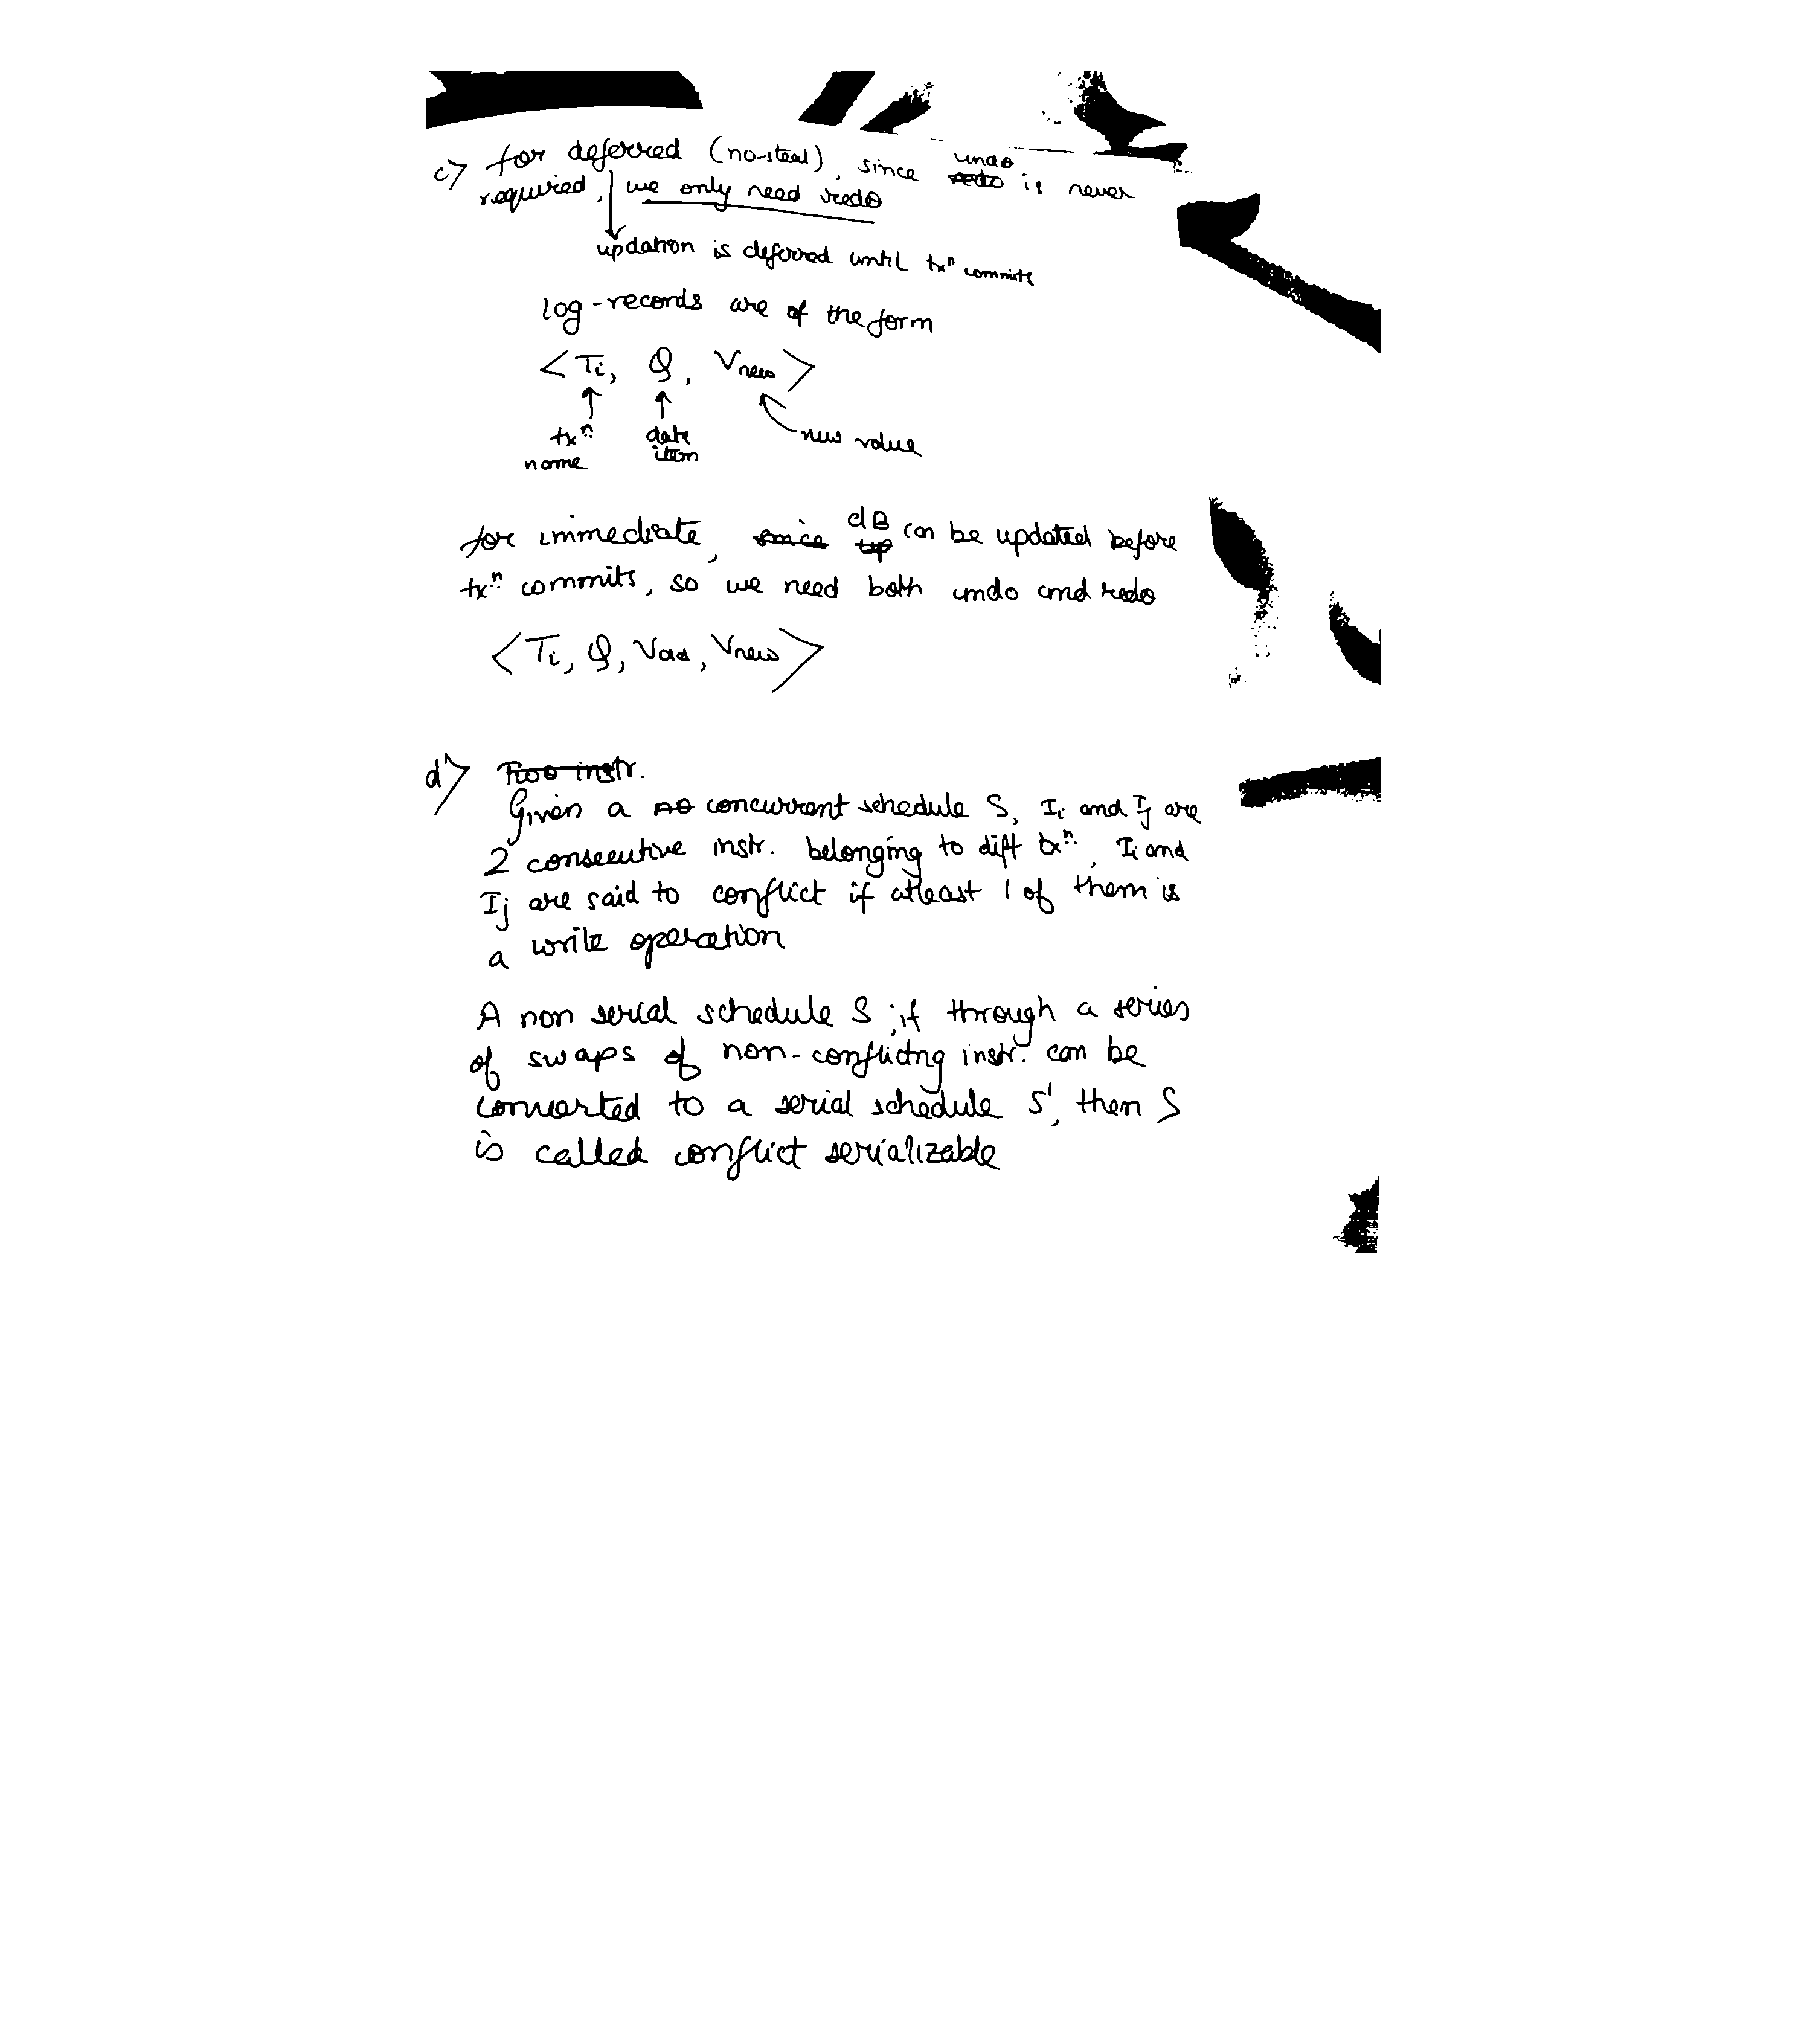 c) for deferred (no-steal), since undo is never
required, we only need redo
updation is deferred until txⁿ commits
log-records are of the form
<Ti, Q, Vnew>
txⁿ name
data item
new value
for immediate, since dB can be updated before
txⁿ commits, so we need both undo and redo
<Ti, Q, Vold, Vnew>
d) Two instr.
Given a no concurrent schedule S, Ii and Ij are
2 consecutive instr. belonging to diff txⁿ, Ii and
Ij are said to conflict if atleast 1 of them is
a write operation
A non serial schedule S, if through a series
of swaps of non-conflicting instr. can be
converted to a serial schedule S', then S
is called conflict serializable